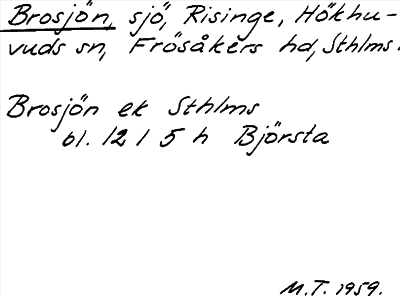 Brosjön, sjö, Risinge, Hökhu-
vuds sn, Frösåkers hd, Sthlms.
Brosjön ek Sthlms
bl. 12 I 5 h Björsta
M.T. 1959.